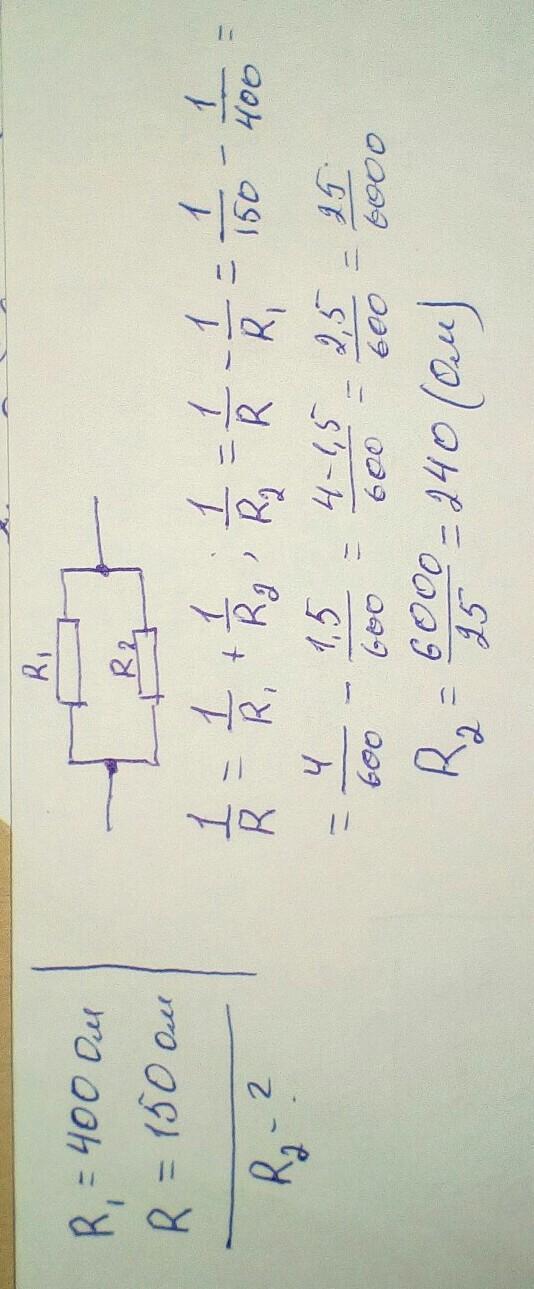 R₁ = 400 Ом
R = 150 Ом
R₂ - ?
R₁
R₂
1/R = 1/R₁ + 1/R₂; 1/R₂ = 1/R - 1/R₁ = 1/150 - 1/400 =
= 4/600 - 1,5/600 = 4-1,5/600 = 2,5/600 = 25/6000
R₂ = 6000/25 = 240 (Ом)